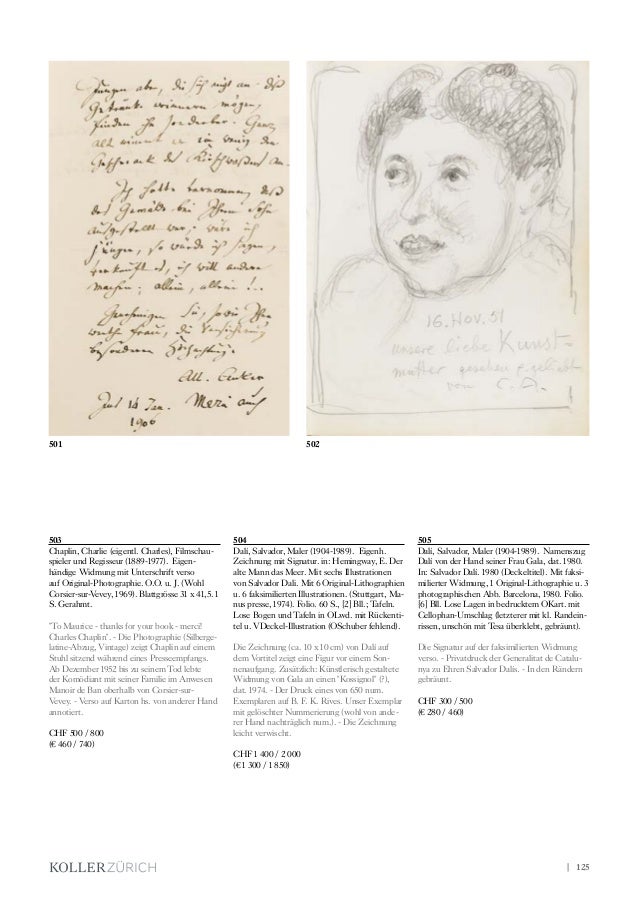 Jungen aber, die sich nicht an
Getränk erinnern mögen,
finden ihn sonderbar. Ganz
alt nimmt er ein wenig den
Geschmack des Kirschwassers an.
Ich hatte vernommen, dass
das Gemälde bei Ihrem Sohn
ausgestellt war; wäre ich
jünger, so würde ich sagen,
verkauft es, ich will andere
machen; allein, allein!..
Genehmigen Sie, sowie Ihre
werthe Frau, die Versicherung
besonderer Hochachtung.
Alb. Anker
14 Jan.
1906
16. NOV. 51
unsere liebe Kunst-
mutter gesehen & geliebt
von C. A.
501
502
503
Chaplin, Charlie (eigentl. Charles), Filmschau-
spieler und Regisseur (1889-1977). Eigen-
händige Widmung mit Unterschrift verso
auf Original-Photographie. O.O. u. J. (Wohl
Corsier-sur-Vevey, 1969). Blattgrösse 31 x 41,5. 1
S. Gerahmt.
"To Maurice - thanks for your book - merci!
Charles Chaplin". - Die Photographie (Silberge-
latine-Abzug, Vintage) zeigt Chaplin auf einem
Stuhl sitzend während eines Presseempfangs.
Ab Dezember 1952 bis zu seinem Tod lebte
der Komödiant mit seiner Familie im Anwesen
Manoir de Ban oberhalb von Corsier-sur-
Vevey. - Verso auf Karton hs. von anderer Hand
annotiert.
CHF 500 / 800
(€ 460 / 740)
504
Dalí, Salvador, Maler (1904-1989). Eigenh.
Zeichnung mit Signatur. in: Hemingway, E. Der
alte Mann das Meer. Mit sechs Illustrationen
von Salvador Dali. Mit 6 Original-Lithographien
u. 6 faksimilierten Illustrationen. (Stuttgart, Ma-
nus presse, 1974). Folio. 60 S., [2] Bll.; Tafeln.
Lose Bogen und Tafeln in OLwd. mit Rückenti-
tel u. VDeckel-Illustration (OSchuber fehlend).
Die Zeichnung (ca. 10 x 10 cm) von Dalí auf
dem Vortitel zeigt eine Figur vor einem Son-
nenaufgang. Zusätzlich: Künstlerisch gestaltete
Widmung von Gala an einen "Rossignol" (?),
dat. 1974. - Der Druck eines von 650 num.
Exemplaren auf B. F. K. Rives. Unser Exemplar
mit gelöschter Nummerierung (wohl von ande-
rer Hand nachträglich num.). - Die Zeichnung
leicht verwischt.
CHF 1 400 / 2 000
(€ 1 300 / 1 850)
505
Dalí, Salvador, Maler (1904-1989). Namenszug
Dalí von der Hand seiner Frau Gala, dat. 1980.
In: Salvador Dalí. 1980 (Deckeltitel). Mit faksi-
milierter Widmung, 1 Original-Lithographie u. 3
photographischen Abb. Barcelona, 1980. Folio.
[6] Bll. Lose Lagen in bedrucktem OKart. mit
Cellophan-Umschlag (letzterer mit kl. Randein-
rissen, unschön mit Tesa überklebt, gebräunt).
Die Signatur auf der faksimilierten Widmung
verso. - Privatdruck der Generalitat de Catalu-
nya zu Ehren Salvador Dalís. - In den Rändern
gebräunt.
CHF 300 / 500
(€ 280 / 460)
KOLLER ZÜRICH
| 125